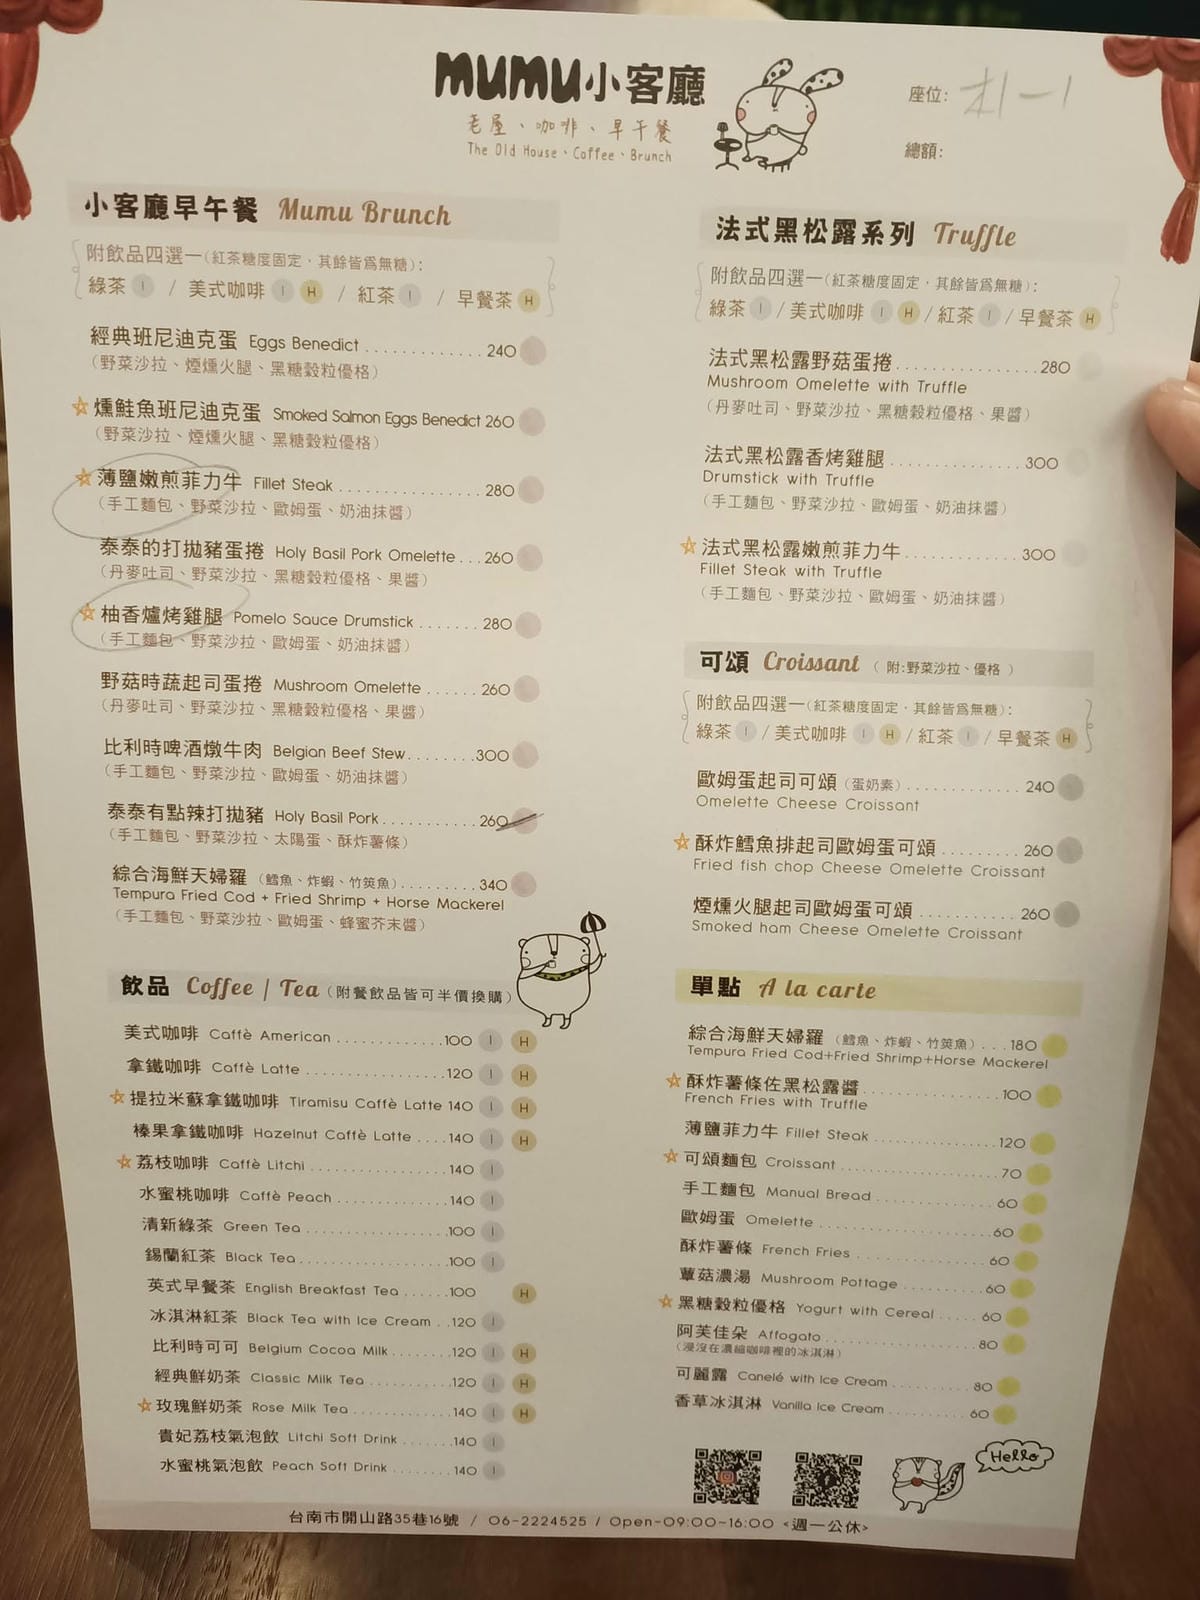 mumu小客廳
老屋、咖啡、早午餐
The Old House、Coffee、Brunch
座位：
總額：
小客廳早午餐 Mumu Brunch
附飲品四選一(紅茶糖度固定，其餘皆為無糖)：
綠茶 I / 美式咖啡 I H / 紅茶 I / 早餐茶 H
經典班尼迪克蛋 Eggs Benedict ............ 240
（野菜沙拉、煙燻火腿、黑糖穀粒優格）
☆燻鮭魚班尼迪克蛋 Smoked Salmon Eggs Benedict 260
（野菜沙拉、煙燻火腿、黑糖穀粒優格）
☆薄鹽嫩煎菲力牛 Fillet Steak ............ 280
（手工麵包、野菜沙拉、歐姆蛋、奶油抹醬）
泰泰的打拋豬蛋捲 Holy Basil Pork Omelette ... 260
（丹麥吐司、野菜沙拉、黑糖穀粒優格、果醬）
☆柚香爐烤雞腿 Pomelo Sauce Drumstick ....... 280
（手工麵包、野菜沙拉、歐姆蛋、奶油抹醬）
野菇時蔬起司蛋捲 Mushroom Omelette ...... 260
（丹麥吐司、野菜沙拉、黑糖穀粒優格、果醬）
比利時啤酒燉牛肉 Belgian Beef Stew ........ 300
（手工麵包、野菜沙拉、歐姆蛋、奶油抹醬）
泰泰有點辣打拋豬 Holy Basil Pork ........... 260
（手工麵包、野菜沙拉、太陽蛋、酥炸薯條）
綜合海鮮天婦羅 （鱈魚、炸蝦、竹筴魚）.......... 340
Tempura Fried Cod + Fried Shrimp + Horse Mackerel
（手工麵包、野菜沙拉、歐姆蛋、蜂蜜芥末醬）
飲品 Coffee / Tea（附餐飲品皆可半價換購）
美式咖啡 Caffè American ............ 100 I H
拿鐵咖啡 Caffè Latte ............ 120 I H
☆提拉米蘇拿鐵咖啡 Tiramisu Caffè Latte 140 I H
榛果拿鐵咖啡 Hazelnut Caffè Latte .... 140 I H
☆荔枝咖啡 Caffè Litchi ............ 140 I
水蜜桃咖啡 Caffè Peach ............ 140 I
清新綠茶 Green Tea ............ 100 I
錫蘭紅茶 Black Tea ............ 100 I
英式早餐茶 English Breakfast Tea ...... 100 H
冰淇淋紅茶 Black Tea with Ice Cream .. 120 I
比利時可可 Belgium Cocoa Milk ........ 120 I H
經典鮮奶茶 Classic Milk Tea ............ 120 I H
☆玫瑰鮮奶茶 Rose Milk Tea ............ 140 I H
貴妃荔枝氣泡飲 Litchi Soft Drink ....... 140 I
水蜜桃氣泡飲 Peach Soft Drink ........ 140 I
法式黑松露系列 Truffle
附飲品四選一(紅茶糖度固定，其餘皆為無糖)：
綠茶 I / 美式咖啡 I H / 紅茶 I / 早餐茶 H
法式黑松露野菇蛋捲 ................ 280
Mushroom Omelette with Truffle
（丹麥吐司、野菜沙拉、黑糖穀粒優格、果醬）
法式黑松露香烤雞腿 ............... 300
Drumstick with Truffle
（手工麵包、野菜沙拉、歐姆蛋、奶油抹醬）
☆法式黑松露嫩煎菲力牛 ............. 300
Fillet Steak with Truffle
（手工麵包、野菜沙拉、歐姆蛋、奶油抹醬）
可頌 Croissant （附:野菜沙拉、優格）
附飲品四選一(紅茶糖度固定，其餘皆為無糖)：
綠茶 I / 美式咖啡 I H / 紅茶 I / 早餐茶 H
歐姆蛋起司可頌（蛋奶素）............. 240
Omelette Cheese Croissant
☆酥炸鱈魚排起司歐姆蛋可頌 ......... 260
Fried fish chop Cheese Omelette Croissant
煙燻火腿起司歐姆蛋可頌 ........... 260
Smoked ham Cheese Omelette Croissant
單點 A la carte
綜合海鮮天婦羅 （鱈魚、炸蝦、竹筴魚）... 180
Tempura Fried Cod+Fried Shrimp+Horse Mackerel
☆酥炸薯條佐黑松露醬 ............... 100
French Fries with Truffle
薄鹽菲力牛 Fillet Steak ............... 120
☆可頌麵包 Croissant ................... 70
手工麵包 Manual Bread ............... 60
歐姆蛋 Omelette ..................... 60
酥炸薯條 French Fries ............... 60
蕈菇濃湯 Mushroom Pottage .......... 60
☆黑糖穀粒優格 Yogurt with Cereal ..... 60
阿芙佳朵 Affogato ................... 80
（浸沒在濃縮咖啡裡的冰淇淋）
可麗露 Canelé with Ice Cream .......... 80
香草冰淇淋 Vanilla Ice Cream .......... 60
Hello
台南市開山路35巷16號 / 06-2224525 / Open-09:00~16:00 <週一公休>